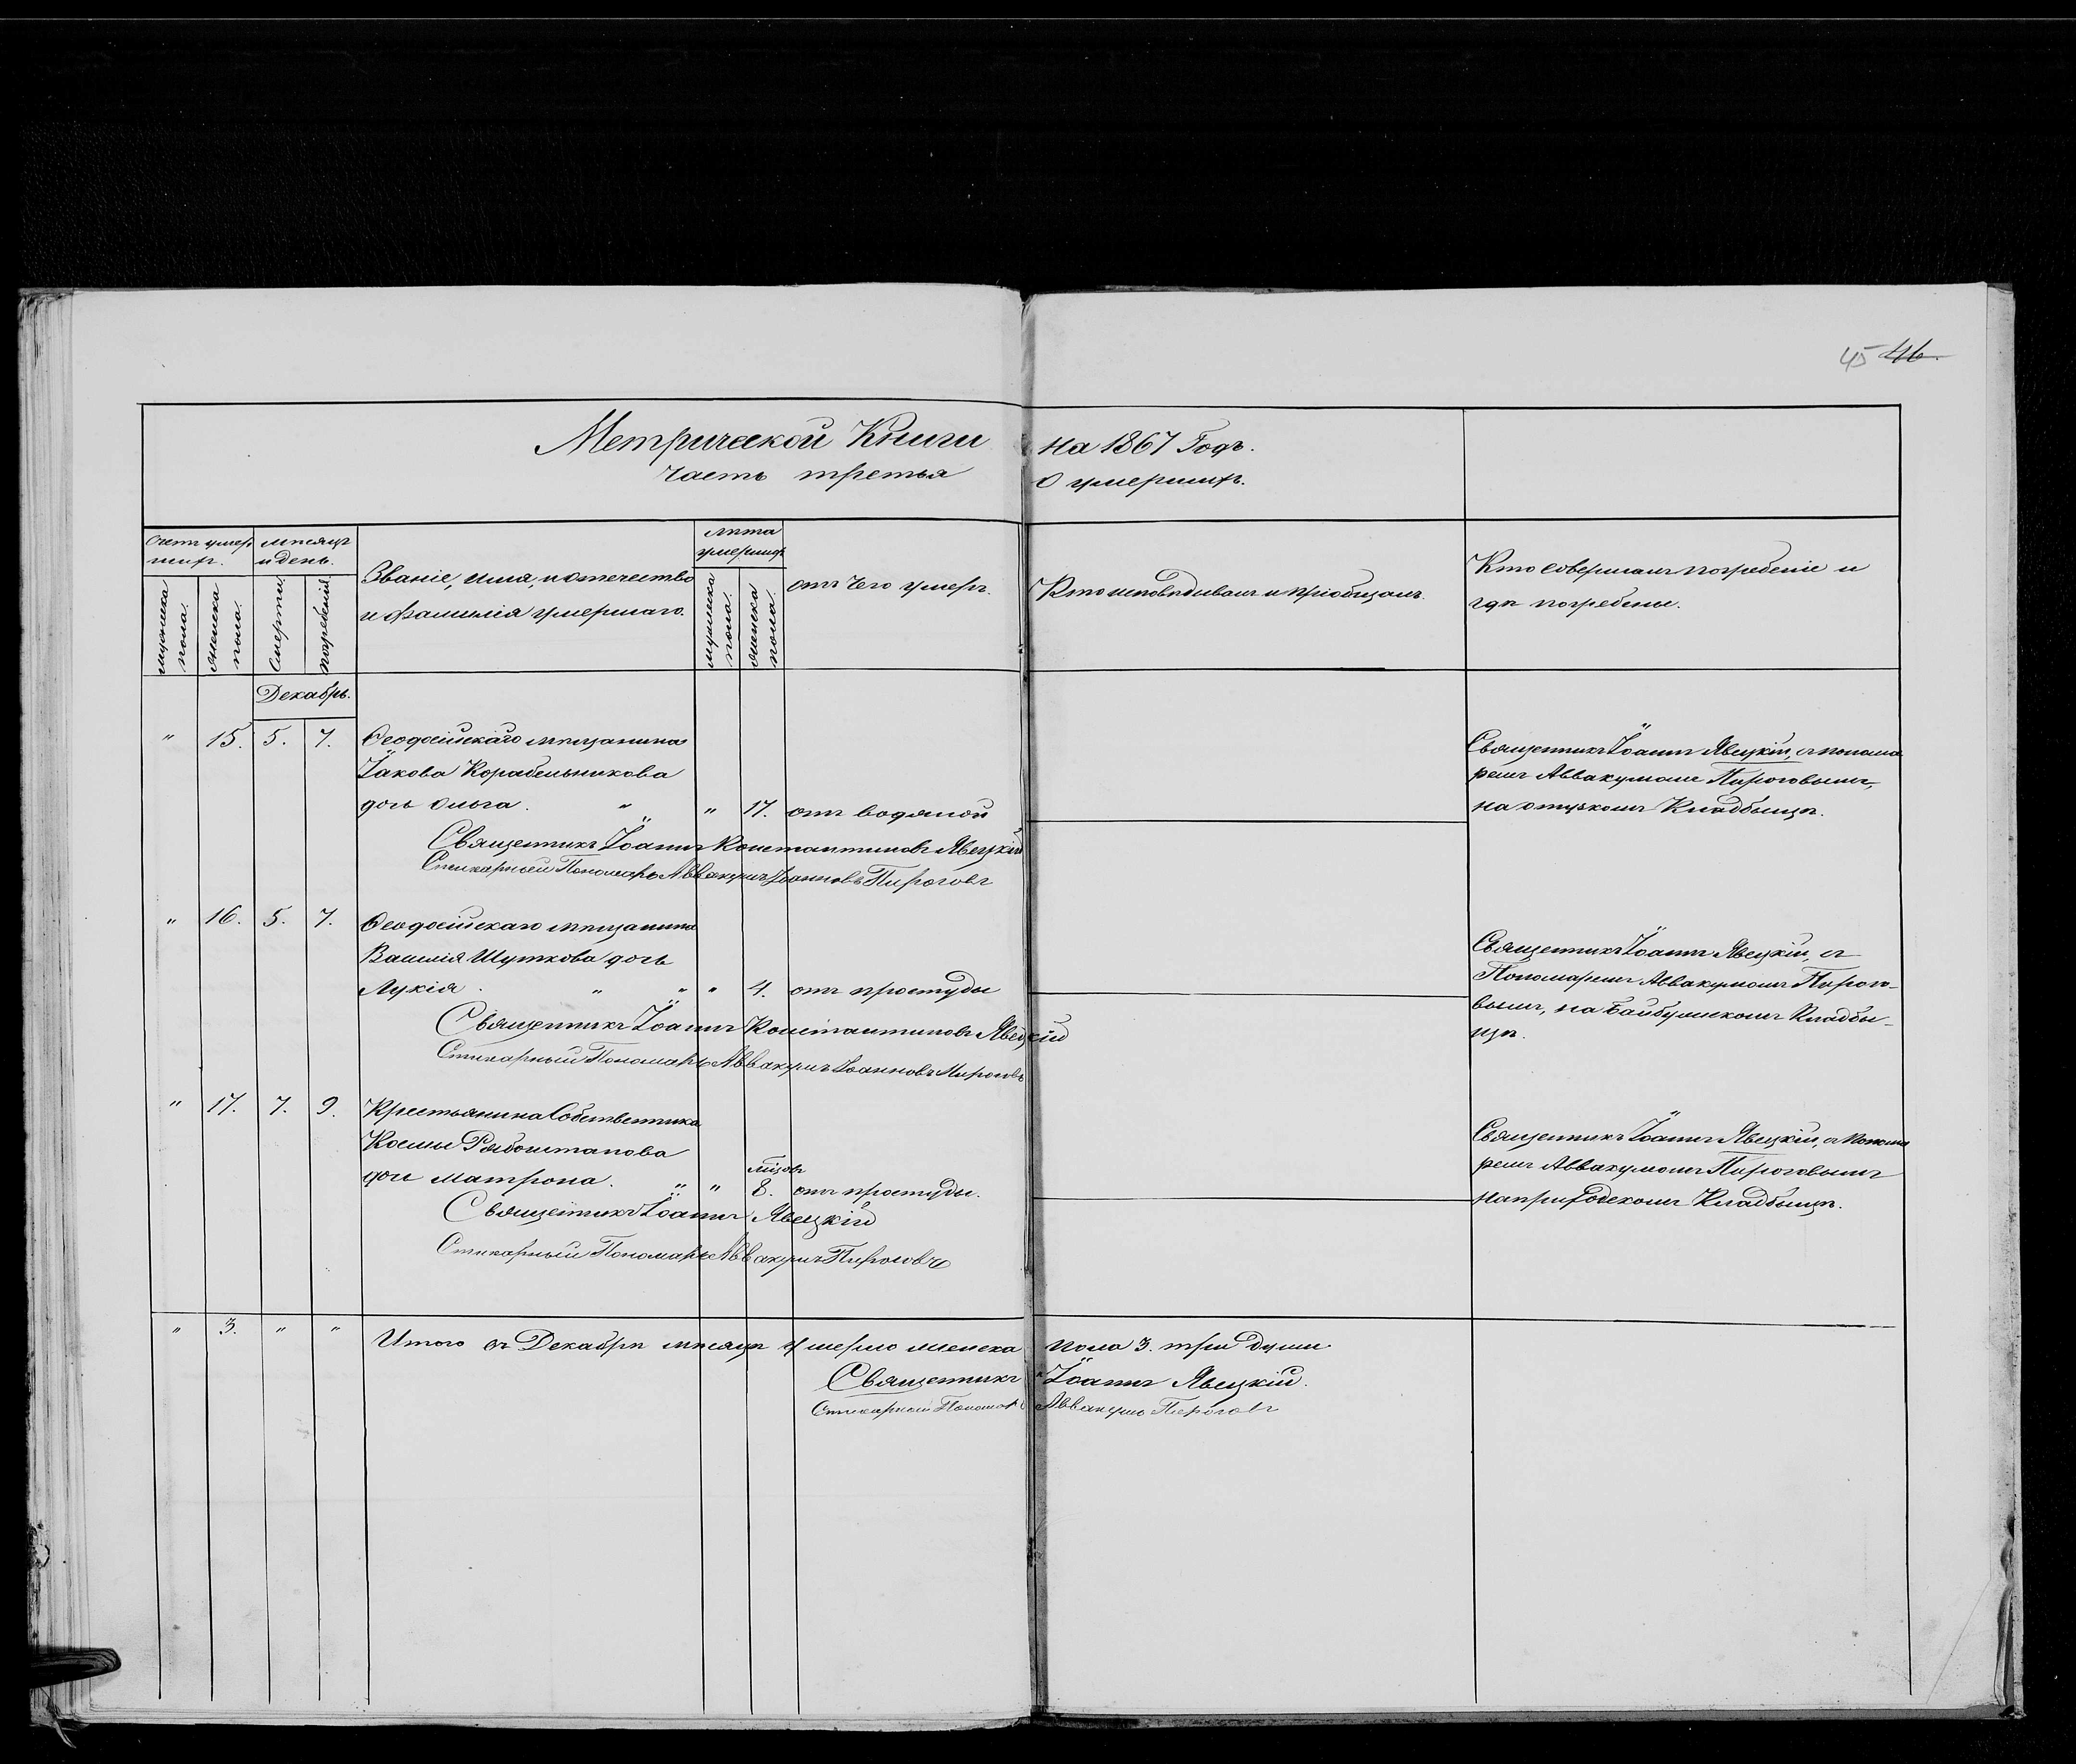 45 46.
Метрической Книги на 1867 Годъ.
часть третья О умершихъ.
Счетъ умер
шихъ.
мѣсяцъ
и день.
мужеска
пола.
женска
пола.
Смерти.
погребенія.
Званіе, имя, и отечество
и фамилія умершаго.
лѣта
умершихъ
мужеска
пола.
женска
пола.
отъ чего умеръ.
Кто исповѣдывалъ и пріобщалъ.
Кто Совершалъ погребеніе и
гдѣ погребены.
Декабрь.
" 15. 5. 7. Ѳеодосійскаго мѣщанина
Іакова Корабельникова
дочь Ольга. " " 17. отъ водяной
Священникъ Іоаннъ Явецкій, съ понома
ремъ Аввакумомъ Пироговымъ,
на отузкомъ Кладбищѣ.
Священникъ Іоаннъ Константиновъ Явецкій
Стихарный Пономарь Аввакумъ Іоанновъ Пироговъ
" 16. 5. 7. Ѳеодосійскаго мѣщанина
Василія Шуткова дочь
Лукія. " " " 4. отъ простуды
Священникъ Іоаннъ Явецкій, съ
Пономаремъ Аввакумомъ Пирого-
вымъ, на Байбугскомъ Кладби-
щѣ.
Священникъ Іоаннъ Константиновъ Явецкій
Стихарный Пономарь Аввакумъ Іоанновъ Пироговъ
" 17. 7. 9. Крестьянина Собственника
Космы Рябоштанова
дочь Матрона. " " мѣсяцъ 8. отъ простуды.
Священникъ Іоаннъ Явецкій, съ Понома
ремъ Аввакумомъ Пироговымъ
на природскомъ Кладбищѣ.
Священникъ Іоаннъ Явецкій
Стихарный Пономарь Аввакумъ Пироговъ
" 3. " " Итого въ Декабрѣ мѣсяцѣ умерло женска пола 3. три души.
Священникъ Іоаннъ Явецкій.
Стихарный Пономарь Аввакумъ Пироговъ